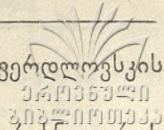 ვერდლოვსკის
ეროვნული
ბიბლიოთეკა